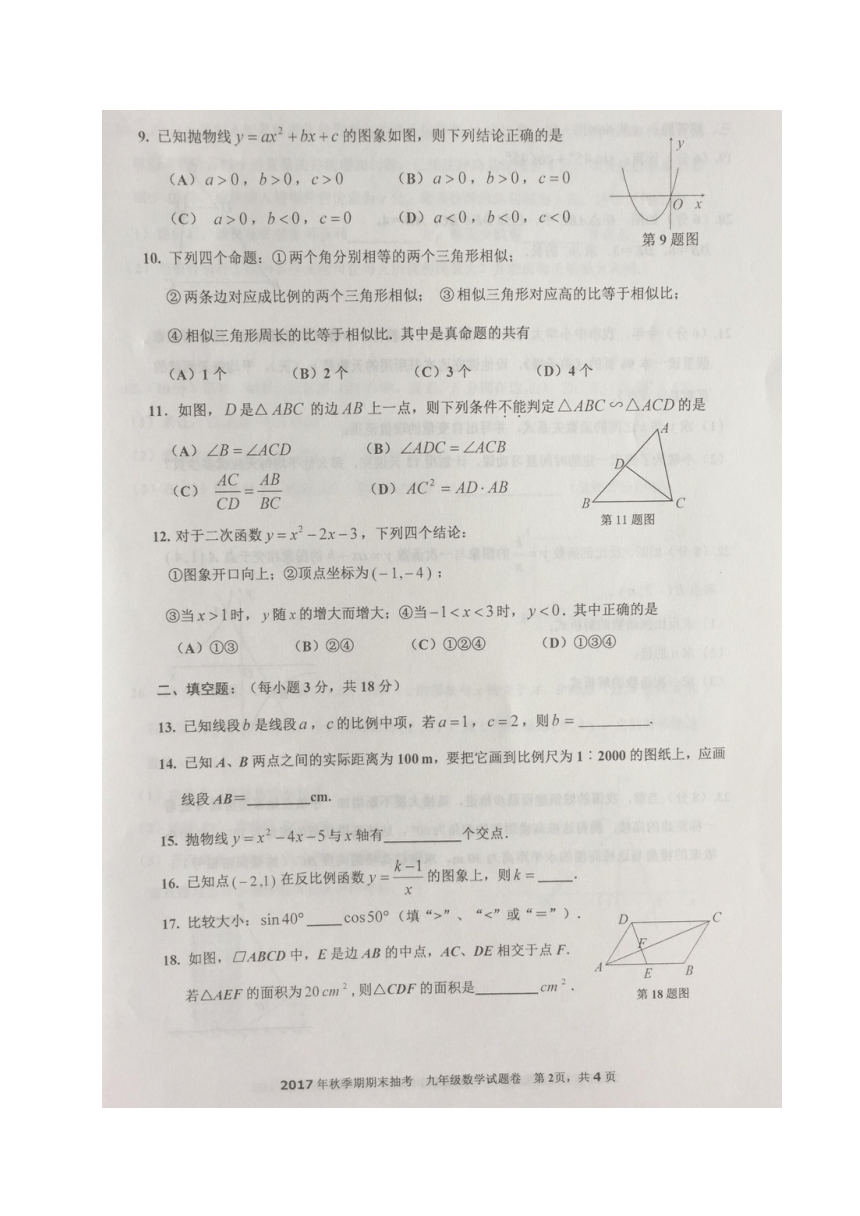 9. 已知抛物线 y = ax² + bx + c 的图象如图，则下列结论正确的是
（A）a > 0，b > 0，c > 0 （B）a > 0，b > 0，c = 0
（C） a > 0，b < 0，c = 0 （D）a < 0，b < 0，c < 0
y
O x
第 9 题图
10. 下列四个命题：①两个角分别相等的两个三角形相似；
②两条边对应成比例的两个三角形相似； ③相似三角形对应高的比等于相似比；
④相似三角形周长的比等于相似比．其中是真命题的共有
（A）1 个 （B）2 个 （C）3 个 （D）4 个
11．如图， D 是△ ABC 的边 AB 上一点，则下列条件不能判定 △ABC ∽△ACD 的是
（A）∠B = ∠ACD （B）∠ADC = ∠ACB
（C） AC/CD = AB/BC （D）AC² = AD · AB
A
D
B C
第 11 题图
12. 对于二次函数 y = x² − 2x − 3，下列四个结论：
①图象开口向上；②顶点坐标为 (− 1, − 4)；
③当 x > 1 时，y 随 x 的增大而增大；④当 −1 < x < 3 时，y < 0．其中正确的是
（A）①③ （B）②④ （C）①②④ （D）①③④
二、填空题：（每小题 3 分，共 18 分）
13. 已知线段 b 是线段 a，c 的比例中项，若 a = 1，c = 2，则 b = ________.
14. 已知 A、B 两点之间的实际距离为 100 m，要把它画到比例尺为 1∶2000 的图纸上，应画
线段 AB＝________cm.
15. 抛物线 y = x² − 4x − 5 与 x 轴有________个交点.
16. 已知点 (− 2,1) 在反比例函数 y = (k−1)/x 的图象上，则 k = ____.
17. 比较大小：sin 40° ____cos 50°（填“>”、“<”或“＝”）.
18. 如图，□ABCD 中，E 是边 AB 的中点，AC、DE 相交于点 F.
若△AEF 的面积为 20 cm²，则△CDF 的面积是________cm²．
D C
F
A E B
第 18 题图
2017 年秋季期期末抽考 九年级数学试题卷 第 2页，共 4 页